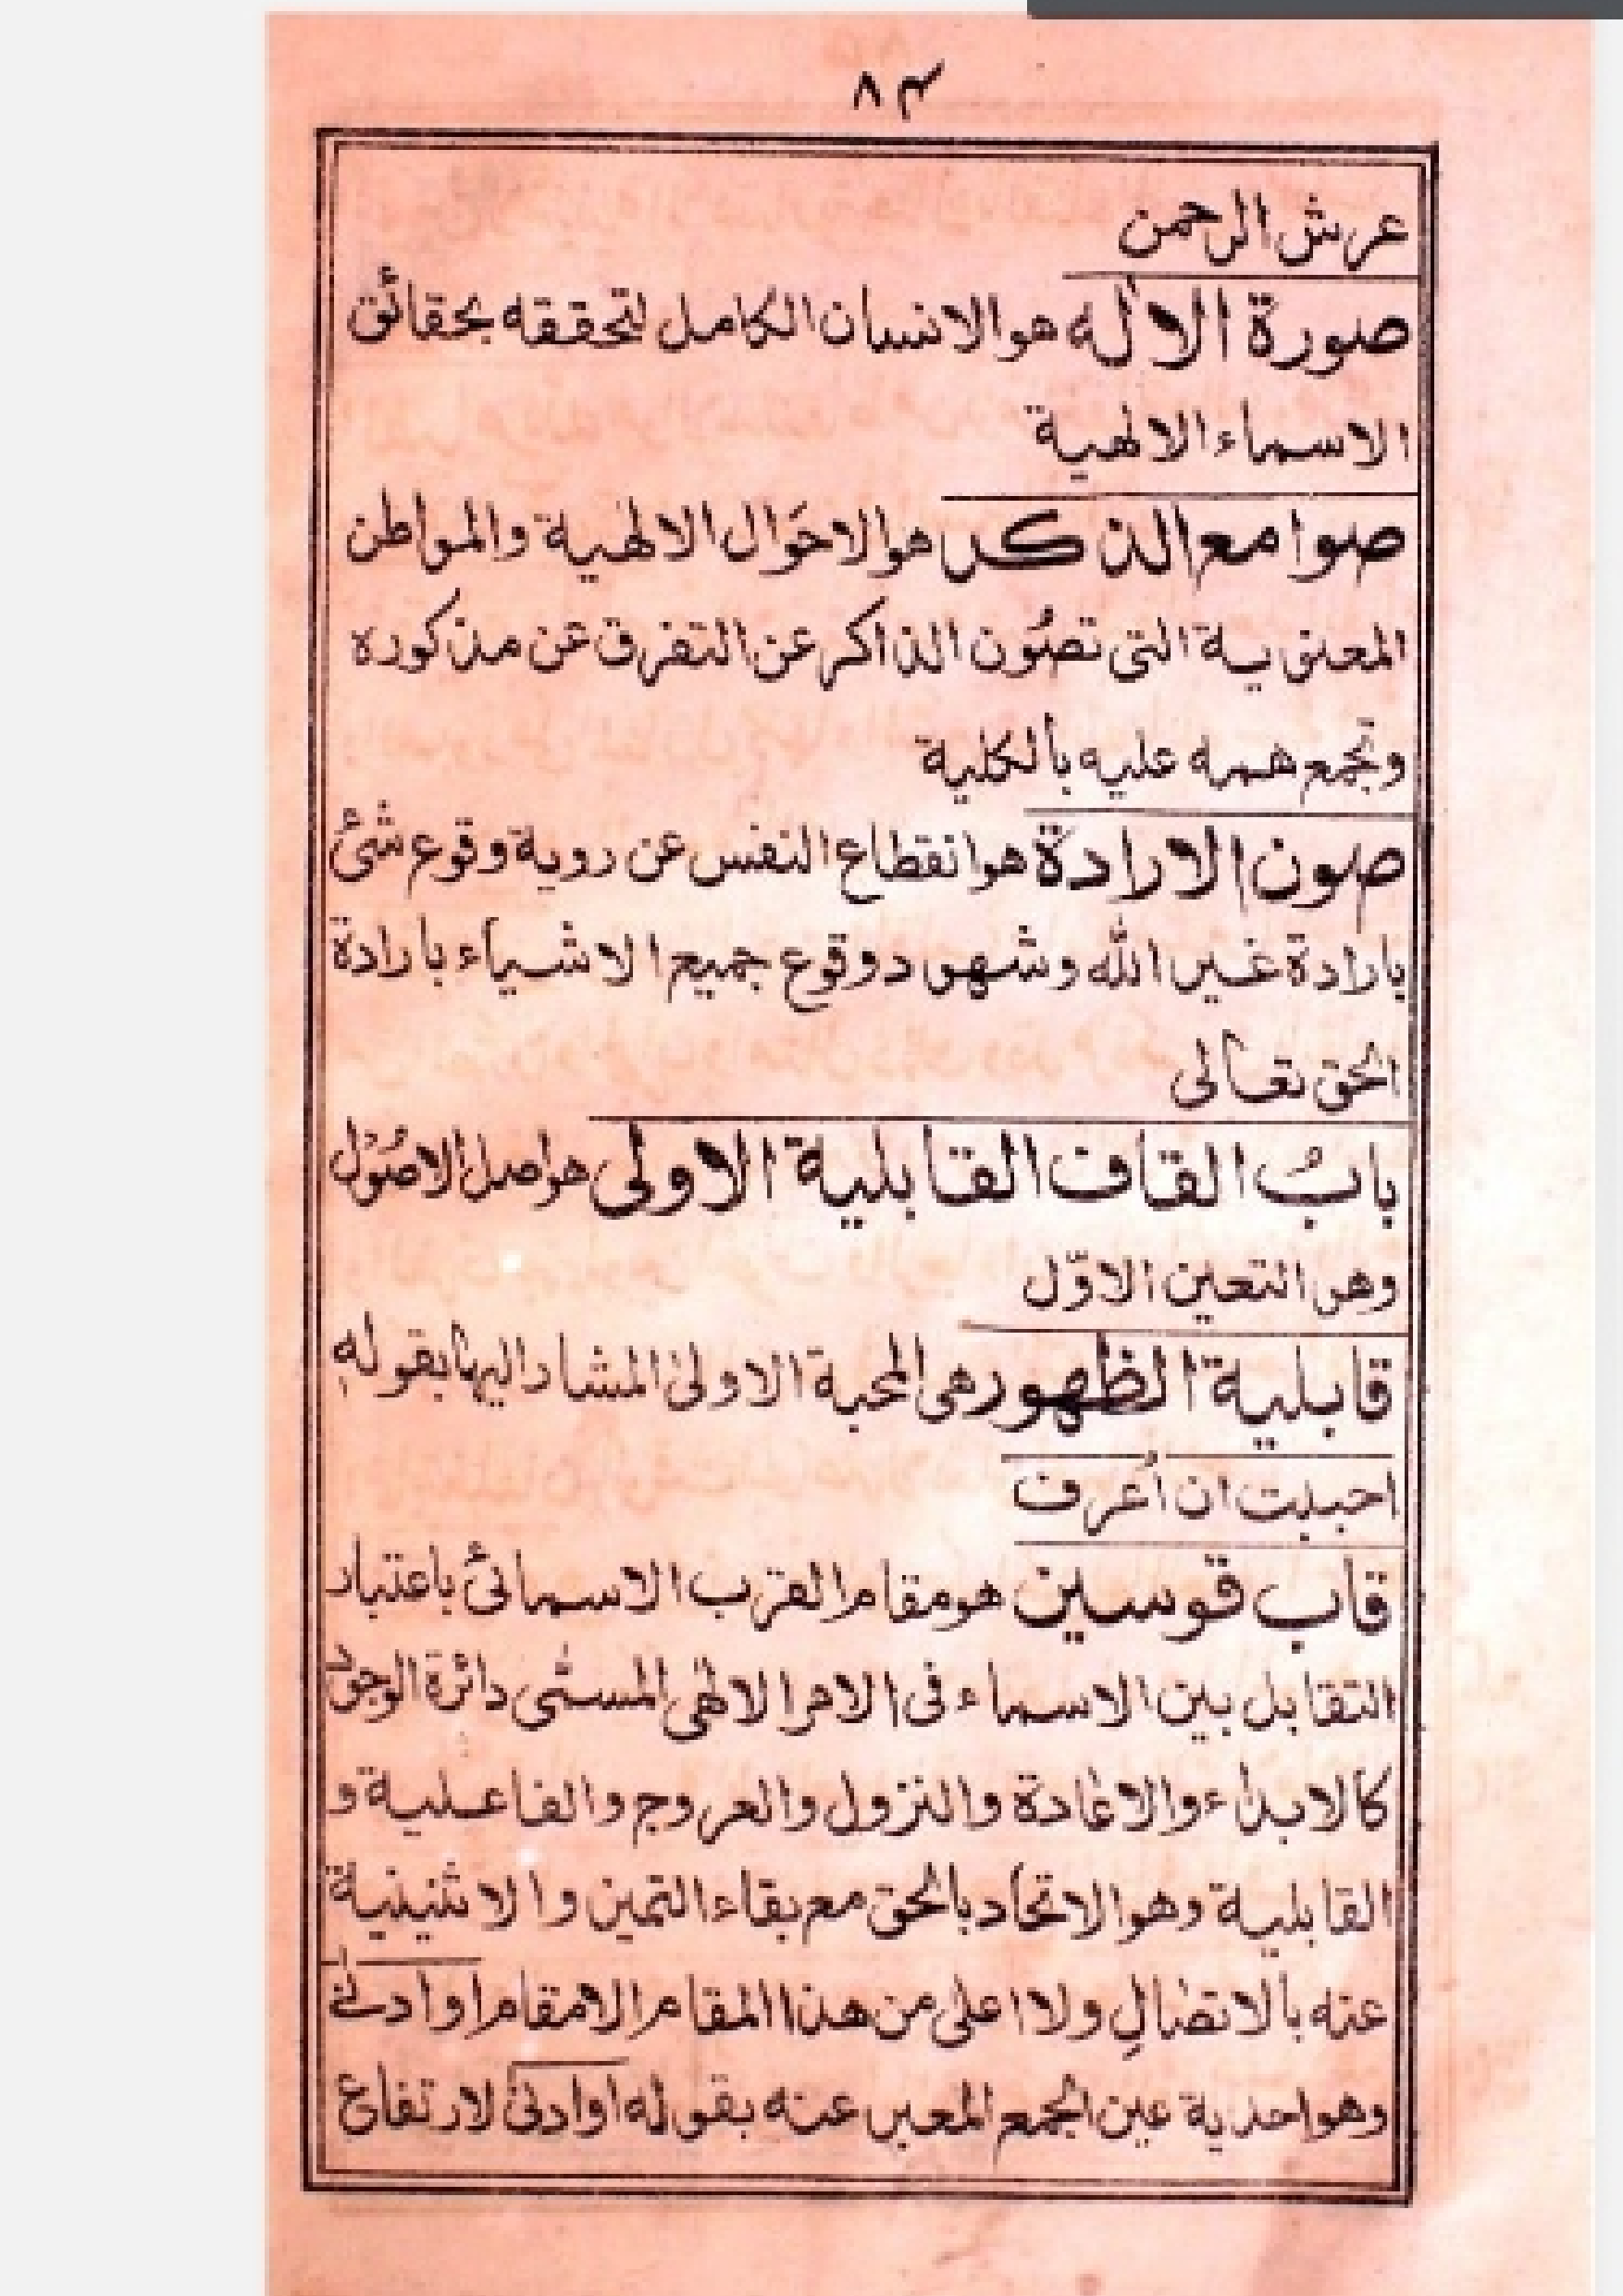 ٨٣
عرش الرحمن
صورة الاله هو الانسان الكامل لتحققه بحقائق
الاسماء الالهية
صوامع الذكر هو الاحَوال الالهية والمواطن
المعنوية التى تصُون الذاكر عن التفرق عن مذكوره
وتجمع همه عليه بالكلية
صون الارادة هو انقطاع النفس عن روية وقوع شئ
بارادة غير الله وشهود وقوع جميع الاشياء بارادة
الحق تعالى
بابُ القاف القابلية الاولى هو اصل الاصُول
وهو التعين الاوّل
قابلية الظهور هى المحبة الاولى المشار اليها بقوله
احببت ان اُعرف
قاب قوسين هو مقام القرب الاسمائى باعتبار
التقابل بين الاسماء فى الامر الالهى المسمى دائرة الوجود
كالابداء والاعادة والنزول والعروج والفاعلية و
القابلية وهو الاتحاد بالحق مع بقاء التميز والاثنينية
عنه بالاتصالِ ولا اعلى من هذا المقام الا مقام او ادنى
وهو احدية عين الجمع المعبر عنه بقوله او ادنى لارتفاع